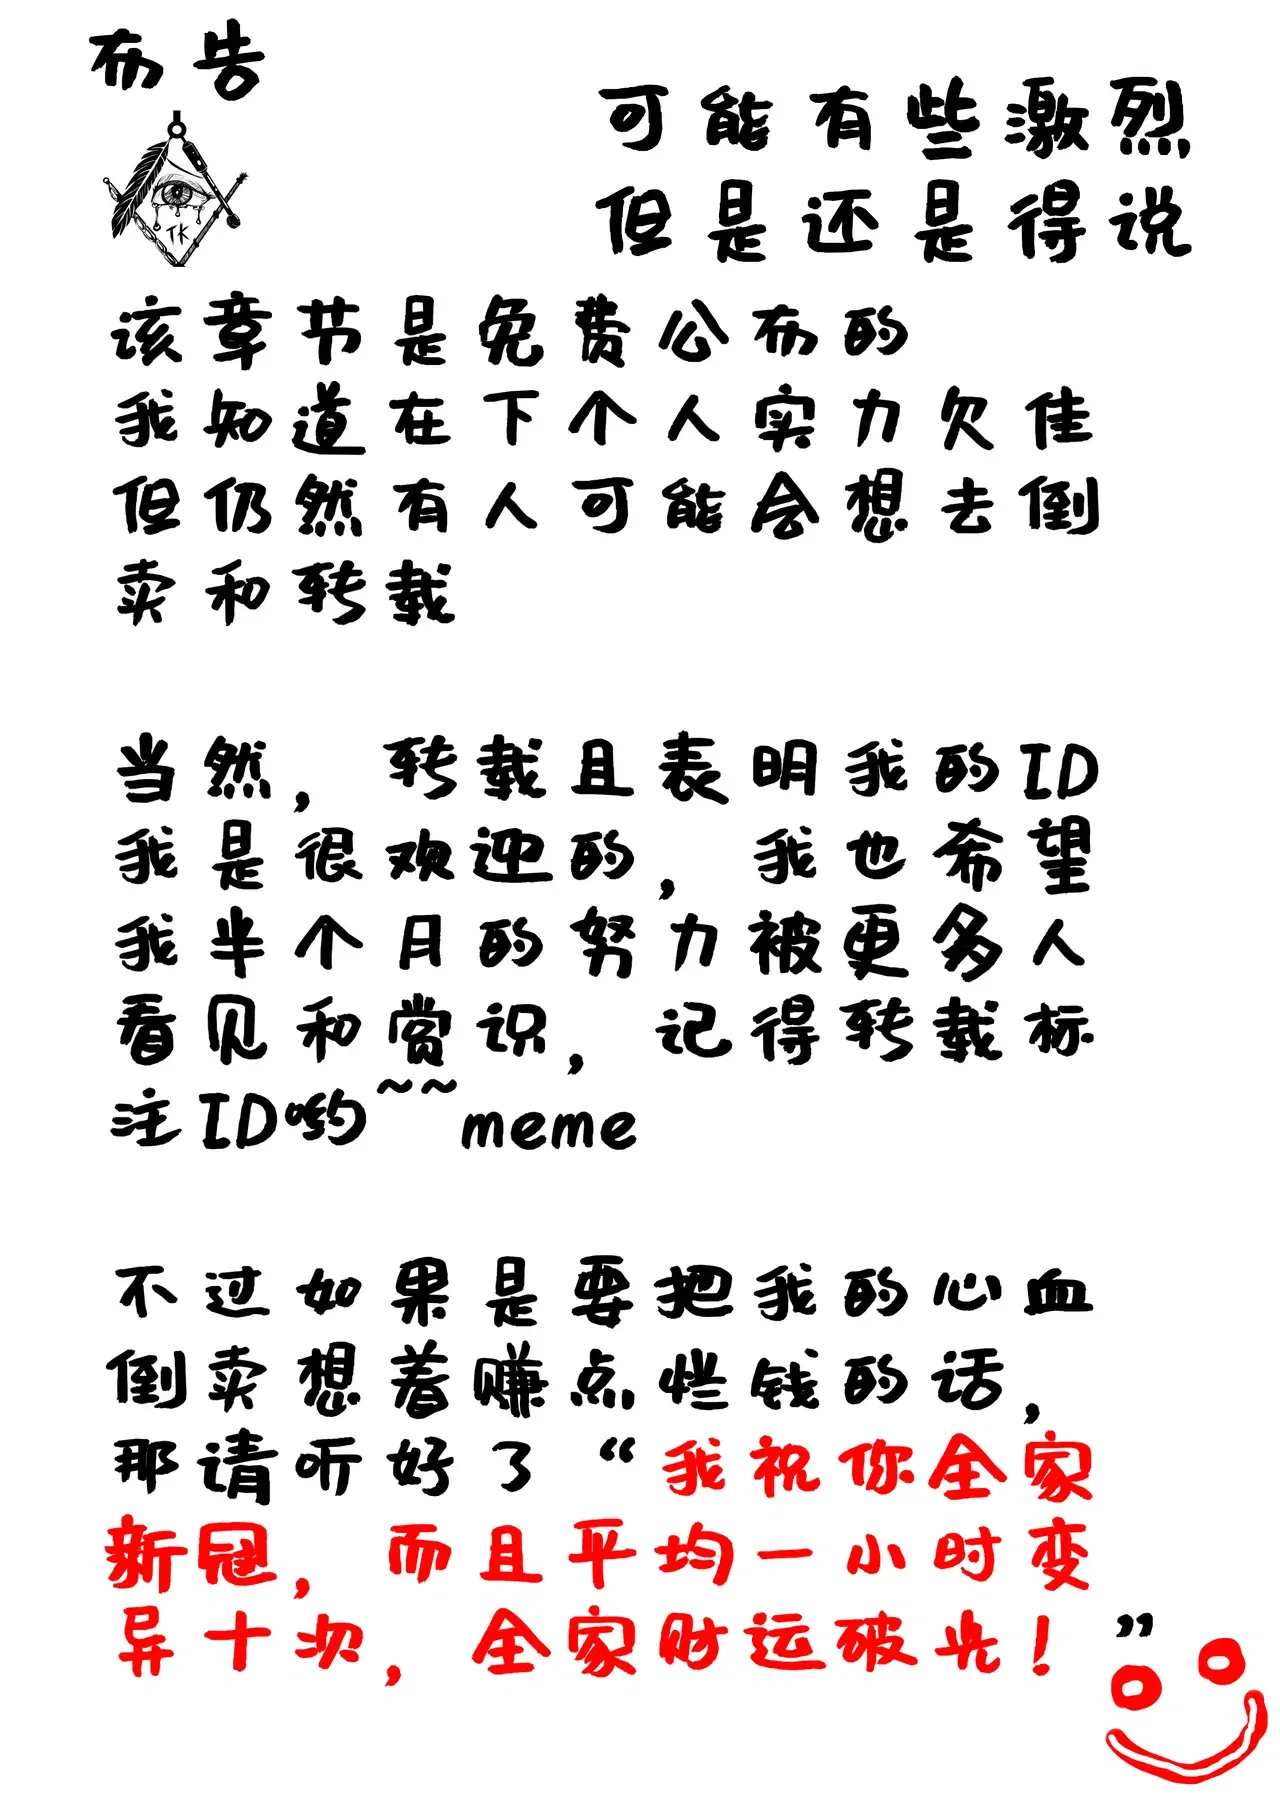 布告
TK
可能有些激烈
但是还是得说
该章节是免费公布的
我知道在下个人实力欠佳
但仍然有人可能会想去倒
卖和转载
当然，转载且表明我的ID
我是很欢迎的，我也希望
我半个月的努力被更多人
看见和赏识，记得转载标
注ID哟~~meme
不过如果是要把我的心血
倒卖想着赚点烂钱的话，
那请听好了“我祝你全家
新冠，而且平均一小时变
异十次，全家财运破光！”